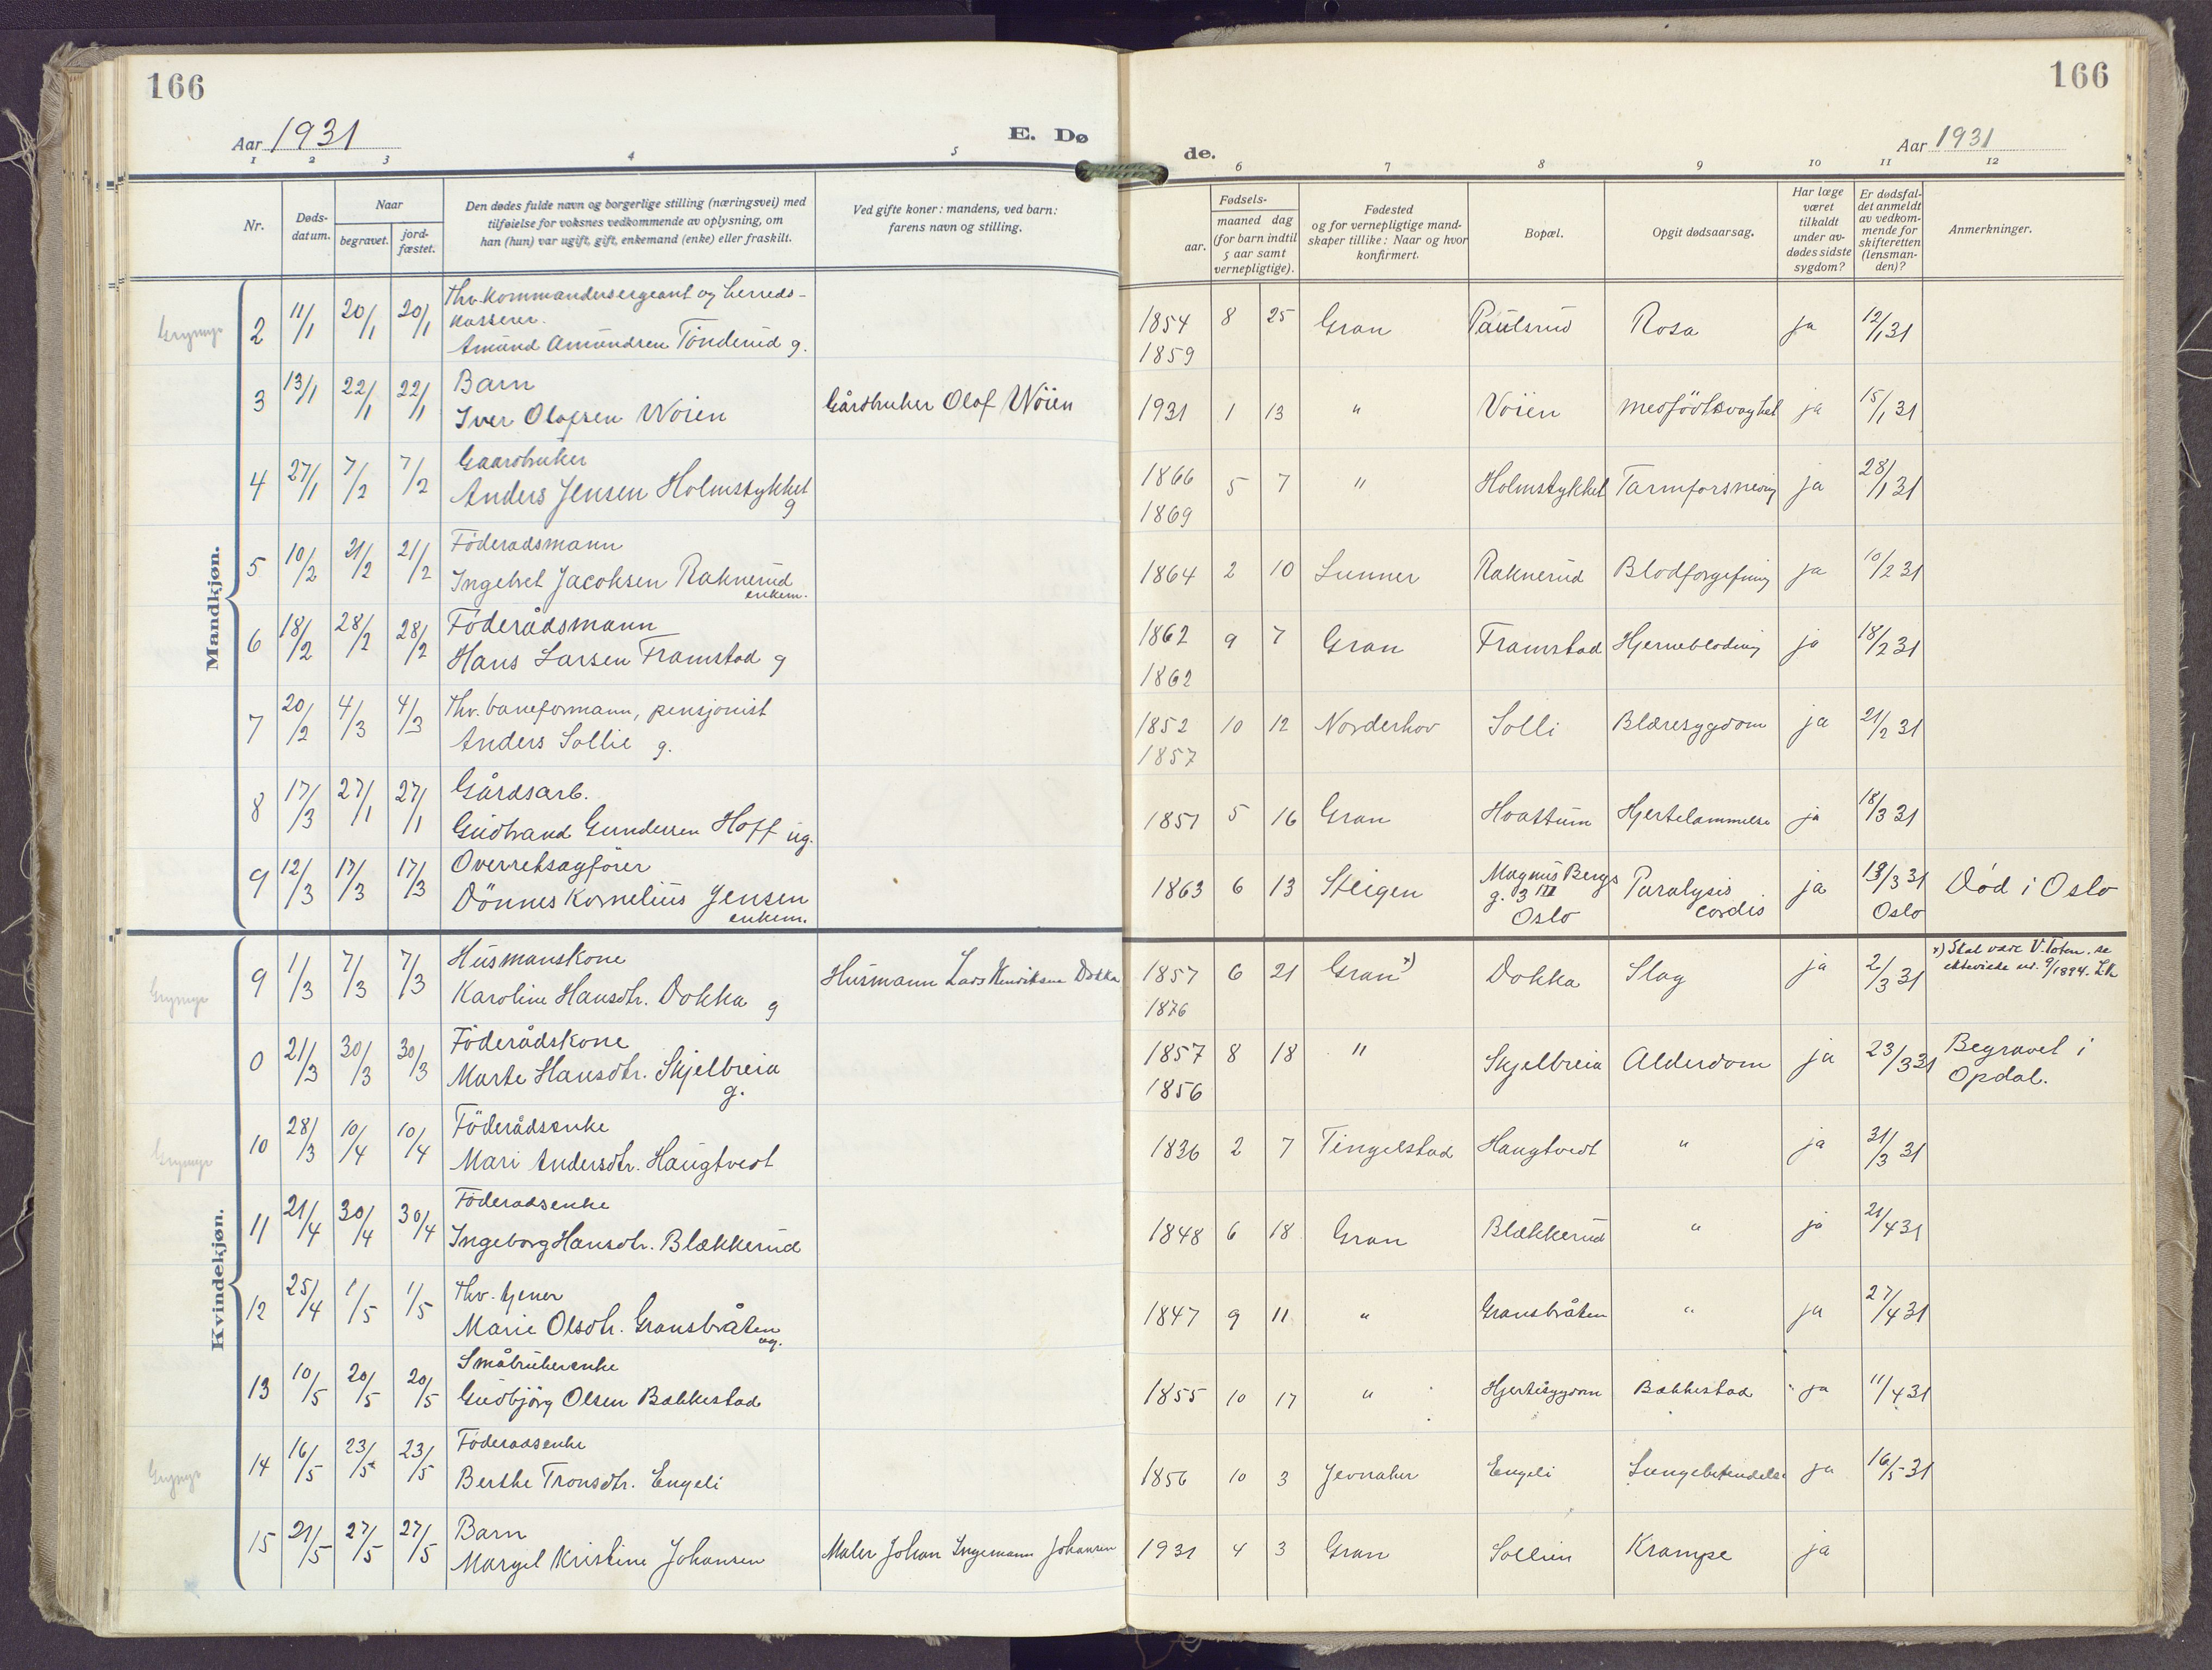 166
166
Aar 1931
E. Dø
de.
Aar 1931
1 2 3 4 5 6 7 8 9 10 11 12
Nr.
Døds-
datum.
Naar
begravet.
jord-
fæstet.
Den dødes fulde navn og borgerlige stilling (næringsvei) med
tilføielse for voksnes vedkommende av oplysning, om
han (hun) var ugift, gift, enkemand (enke) eller fraskilt.
Ved gifte koner: mandens, ved barn:
farens navn og stilling.
Fødsels-
aar.
maaned dag
(for barn indtil
5 aar samt
vernepligtige).
Fødested
og for vernepligtige mand-
skaper tillike: Naar og hvor
konfirmert.
Bopæl.
Opgit dødsaarsag.
Har læge
været
tilkaldt
under av-
dødes sidste
sygdom?
Er dødsfal-
det anmeldt
av vedkom-
mende for
skifteretten
(lensman-
den)?
Anmerkninger.
Mandkjøn.
Thv. Kommandersergeant og herreds-
kasserer.
2 11/1 20/1 20/1 Amund Amundsen Tönderud g. 1854 8 25 Gran Paulsrud Rosa ja 12/1 31
1859
Barn
3 13/1 22/1 22/1 Iver Olafsen Wöien Gårdbruker Olaf Wöien 1931 1 13 " Vöien medfödt svaghet ja 15/1 31
Gaardbruker
4 27/1 7/2 7/2 Anders Jensen Holmstykket g 1866 5 7 " Holmstykket Tarmforsnevring ja 28/1 31
1869
Föderadsmann
5 10/2 21/2 21/2 Ingebret Jacobsen Raknerud enkem. 1864 2 10 Lunner Raknerud Blodforgiftning ja 10/2 31
Föderådsmann
6 18/2 28/2 28/2 Hans Larsen Framstad g 1862 9 7 Gran Framstad Hjerneblødning ja 18/2 31
1862
Thv. baneformann, pensjonist
7 20/2 4/3 4/3 Anders Sollie g. 1852 10 12 Norderhov Solli Blæresygdom ja 21/2 31
1857
Gårdsarb.
8 17/3 27/1 27/1 Gudbrand Gundersen Hoff ug. 1851 5 16 Gran Hvattum Hjertelammelse ja 18/3 31
Overretsagförer
9 12/3 17/3 17/3 Dönnes Kornelius Jensen enkem. 1863 6 13 Steigen Magnus Bergs g. 3 III Oslo Paralysis cordis ja 13/3 31 Oslo Död i Oslo
Kvindekjøn.
Husmanskone
9 1/3 7/3 7/3 Karoline Hansdtr. Dokka g Husmann Lars Henriksen Dokka 1857 6 21 Gran x) Dokka Slag ja 2/3 31 x) Skal være V. Toten, se
1876
Föderådskone
0 21/3 30/3 30/3 Marte Hansdtr. Skjelbreia g. 1857 8 18 " Skjelbreia Alderdom ja 23/3 31 Begravet i Opdal.
1856
Föderådsenke
10 28/3 10/4 10/4 Mari Andersdtr. Haugtvedt 1836 2 7 Tingelstad Haugtvedt " ja 31/3 31
Föderadsenke
11 21/4 30/4 30/4 Ingeborg Hansdtr. Blækkerud 1848 6 18 Gran Blækkerud " ja 21/4 31
Thv. tjener
12 25/4 1/5 1/5 Marie Olsdtr. Gransbråten ug. 1847 9 11 " Gransbråten " ja 27/4 31
Småbrukerenke
13 10/5 20/5 20/5 Gudbjörg Olsen Bækkestad 1855 10 17 " Hjertesygdom Bækkestad ja 11/4 31
Föderadsenke
14 16/5 23/5 23/5 Berthe Tronsdtr. Engeli 1856 10 3 Jevnaker Engeli Lungebetendelse ja 16/5 31
Barn
15 21/5 27/5 27/5 Margit Kristine Johansen Maler Johan Ingemann Johansen 1931 4 3 Gran Sollien Krampe ja